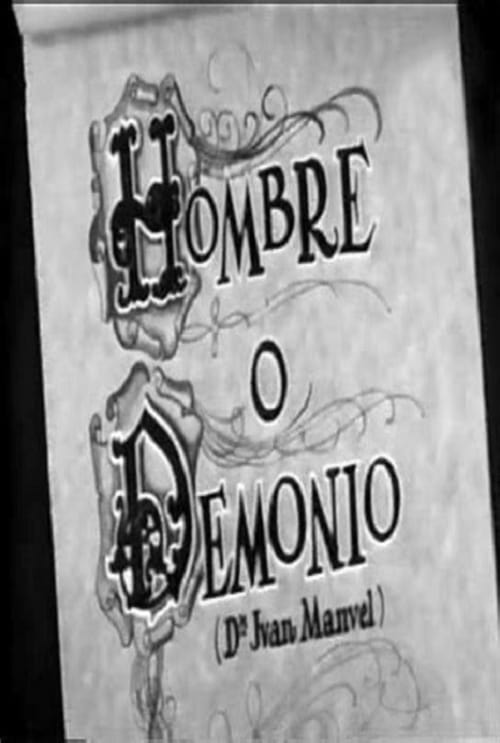 HOMBRE
O
DEMONIO
(Dn Jvan Manvel)